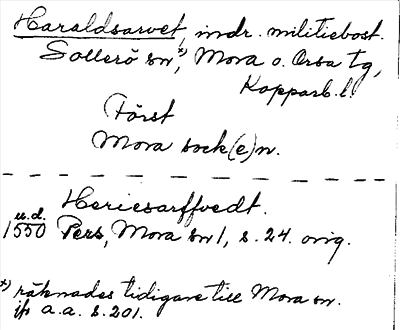 Haraldsarvet, indr. militiebost.
Sollerö sn*), Mora o. Orsa tg,
Kopparb. l.
Först
Mora sock(e)n.
Heriesarffvedt.
u.d.
1550 Pers, Mora sn 1, s. 24. orig.
*) räknades tidigare till Mora sn.
jfr a.a. s. 201.